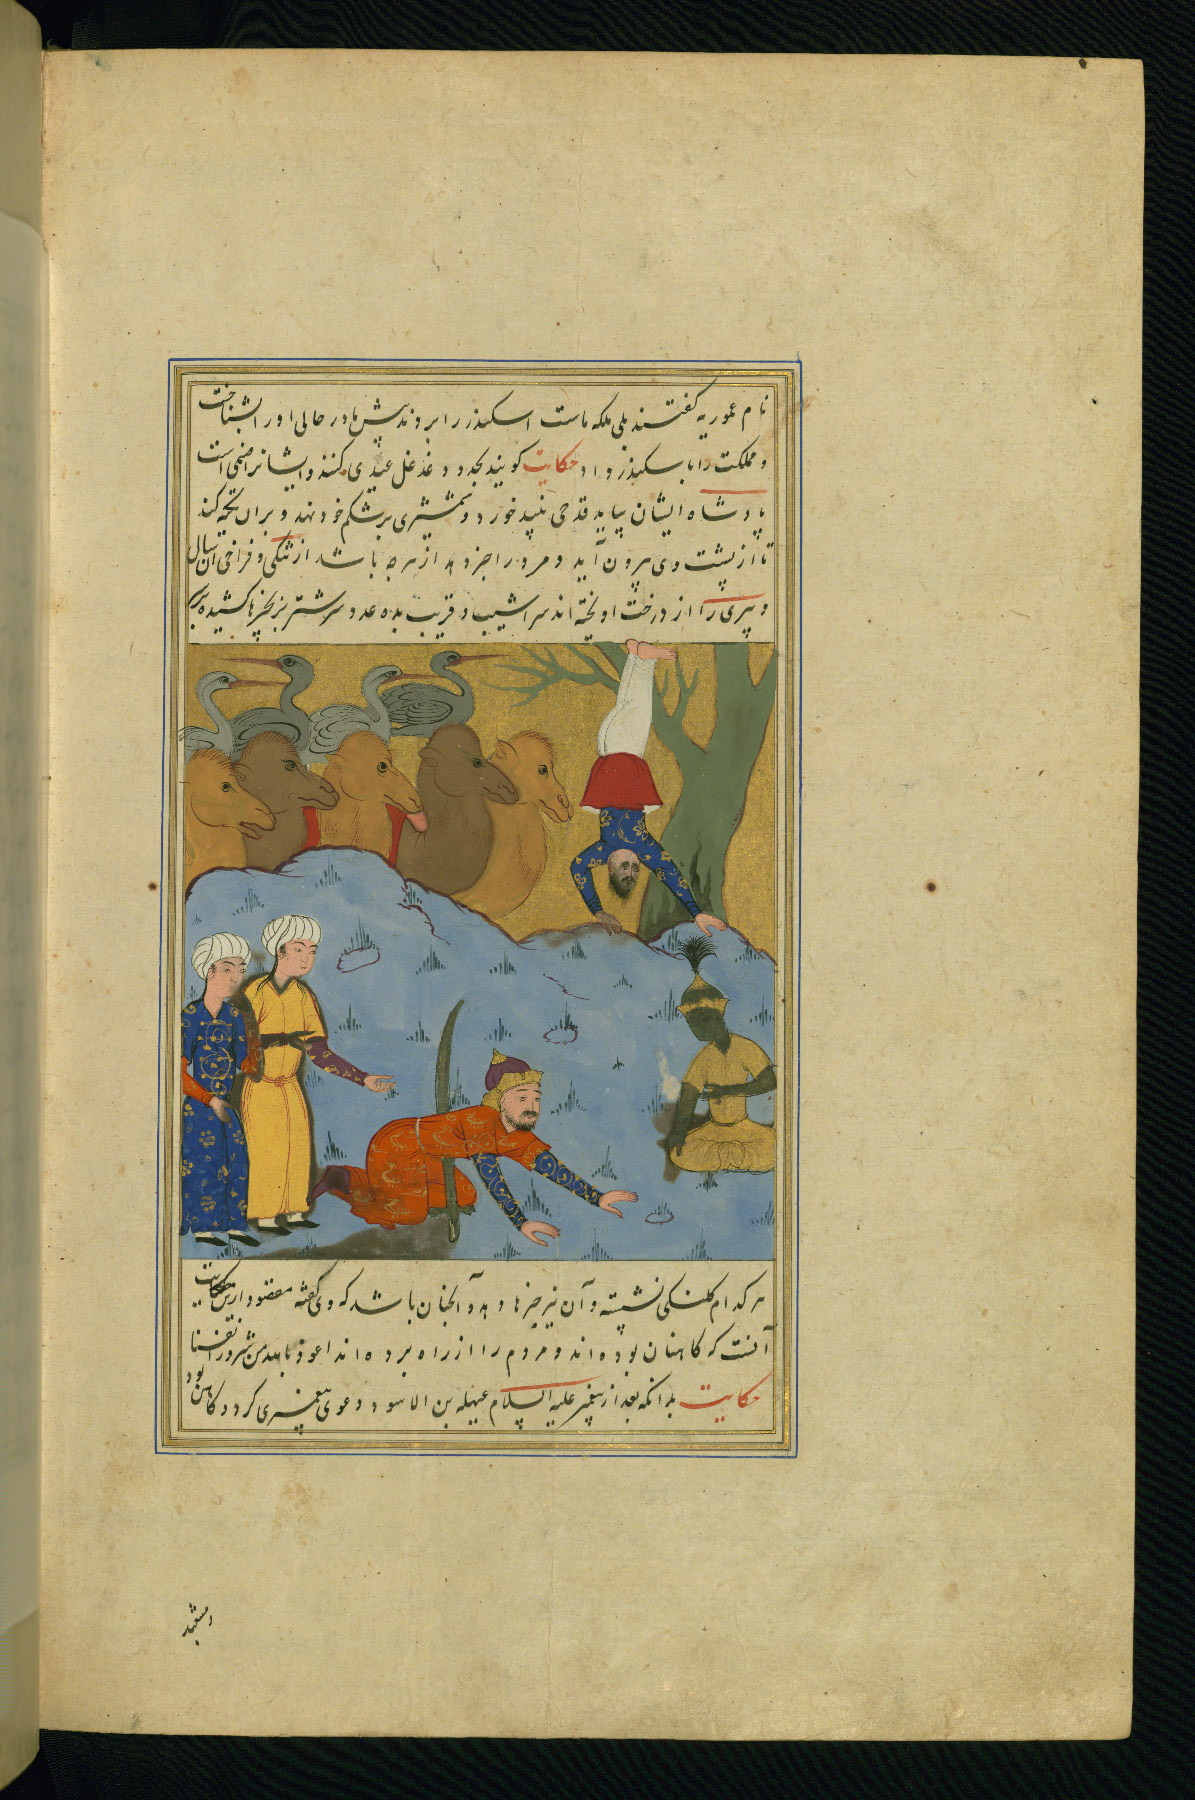 نام عموریه گفتند بلی ملکه ماست اسکندر را بروندیش ما در حالی او را بشناخت
و مملکت را با سکندر داد حکایت گویند بحدود غذغل عیدی کنند و ایشانرا صنمی است
پادشاه ایشان بیاید قدحی نبید خورد و شمشیری بر شکم خود نهد و بران تکیه کند
تا از پشت وی بیرون آید و مردم را خبر دهد از هرچه باشد از تنگی و فراخی آن سال
و پیری را از درخت اویخته اند سراشیب و قریب بده عدد سر شتر بزنجیرها کشیده بر سر
هر کدام کلنگی نشسته و آن نیز خبرها دهد و آنچنان باشد که وی گفته مقصود ازین حکایت
آنست که کاهنان بوده اند و مردم را از راه برده اند اعوذ بالله من شرور انفسنا
حکایت بدانکه بعد از پیغمبر علیه السلام عیهله بن الاسود دعوی پیغمبری کرد و کاهن بود